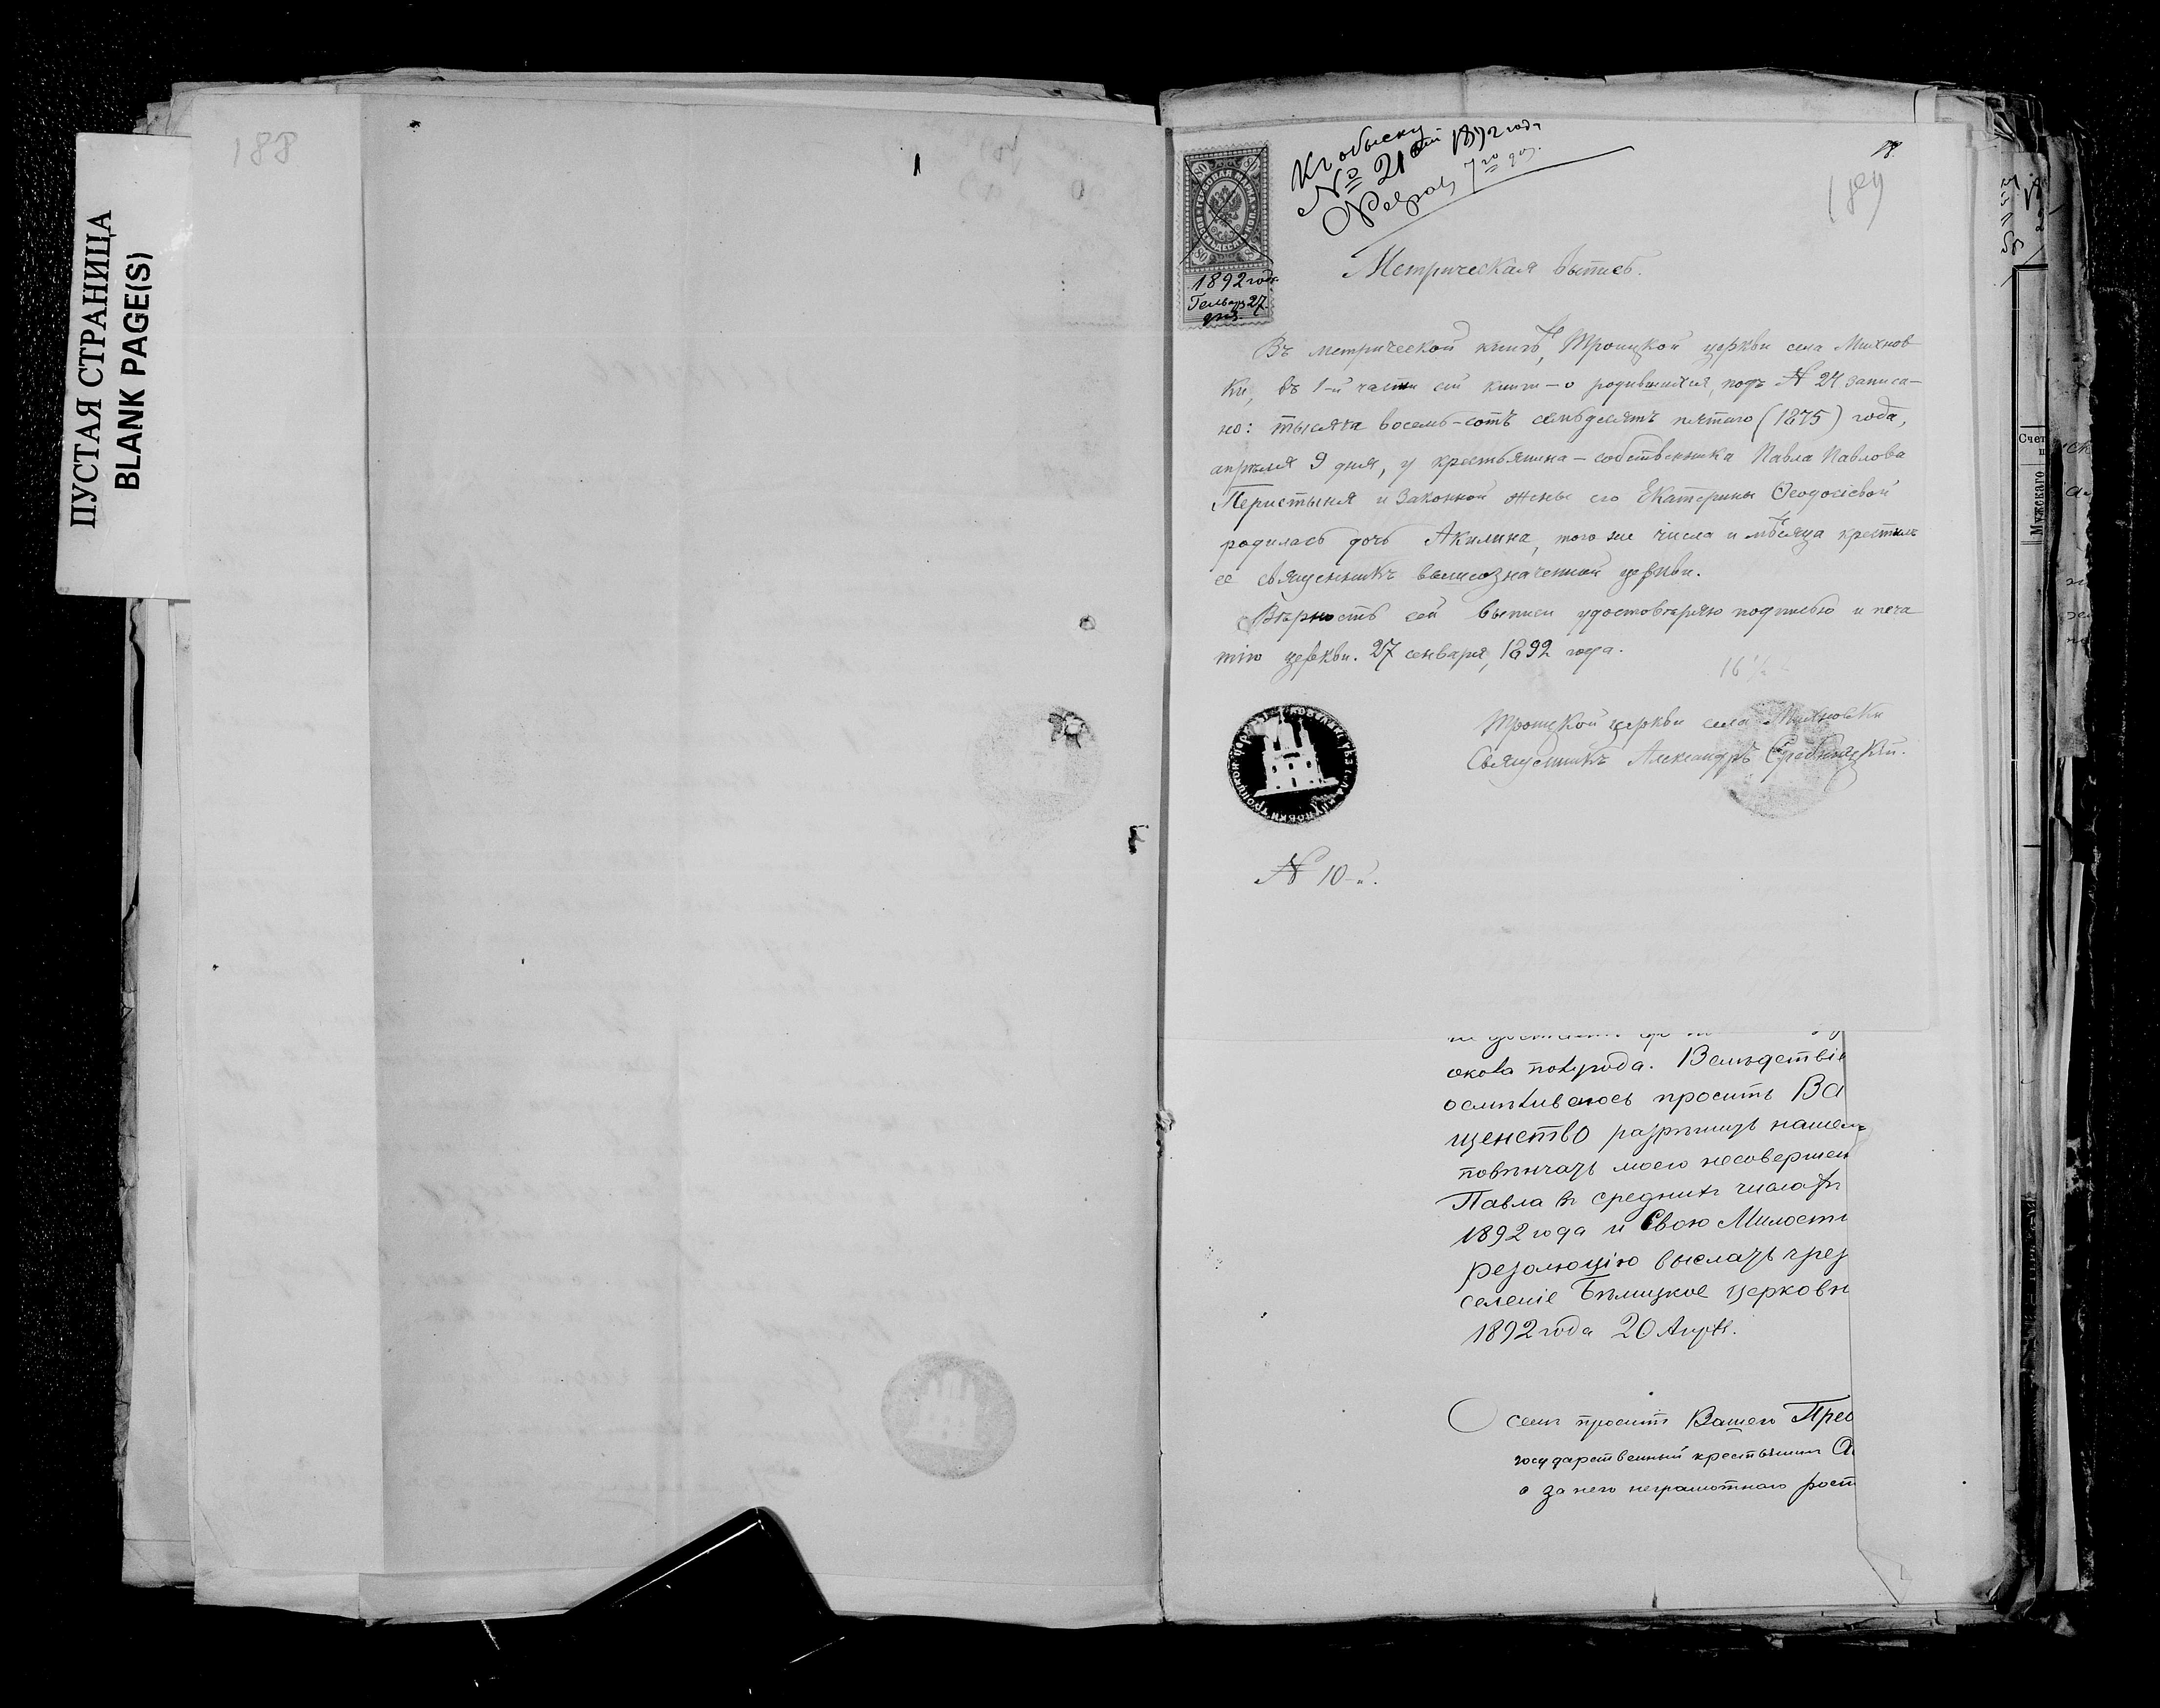 188
ПУСТАЯ СТРАНИЦА
BLANK PAGE(S)
Къ обыску
№ 21 1892 года
7го
189
80 80
ГЕРБОВАЯ МАРКА
ВОСЕМЬДЕСЯТЪ КОП.
80 80
1892 года
Генваря 27
дня.
Метрическая выпись.
Въ метрической книгѣ, Троицкой церкви села Михнов
ки, въ 1-й части сей книги – о родившихся, подъ № 24 записа–
но: тысяча восемь-сотъ семьдесятъ пятаго (1875) года,
апрѣля 9 дня, у крестьянина – собственника Павла Павлова
Перистыня и законной жены его Екатерины Ѳеодосіевой
родилась дочь Акилина, того же числа и мѣсяца крестилъ
ее священникъ вышеозначенной церкви.
Вѣрность сей выписи удостовѣряю подписью и печа
тію церкви. 27 генваря, 1892 года.
16
Троицкой церкви села Михновки
Священникъ Александръ
№ 10-й.
окола полугода. Вслѣдствіе
осмѣливаюсь просить Ва
щенство разрѣшить нашем
повѣнчать моего несовершен
Павла въ среднихъ числахъ
1892 года и Свою Милости
резолюцію выслать чрез
селеніе Бѣлицкое церковн
1892 года 20 Апрѣ.
О семъ проситъ Вашего Прео
государственный крестьянинъ
а за него неграмотнаго росп
Счет
Мужскаго